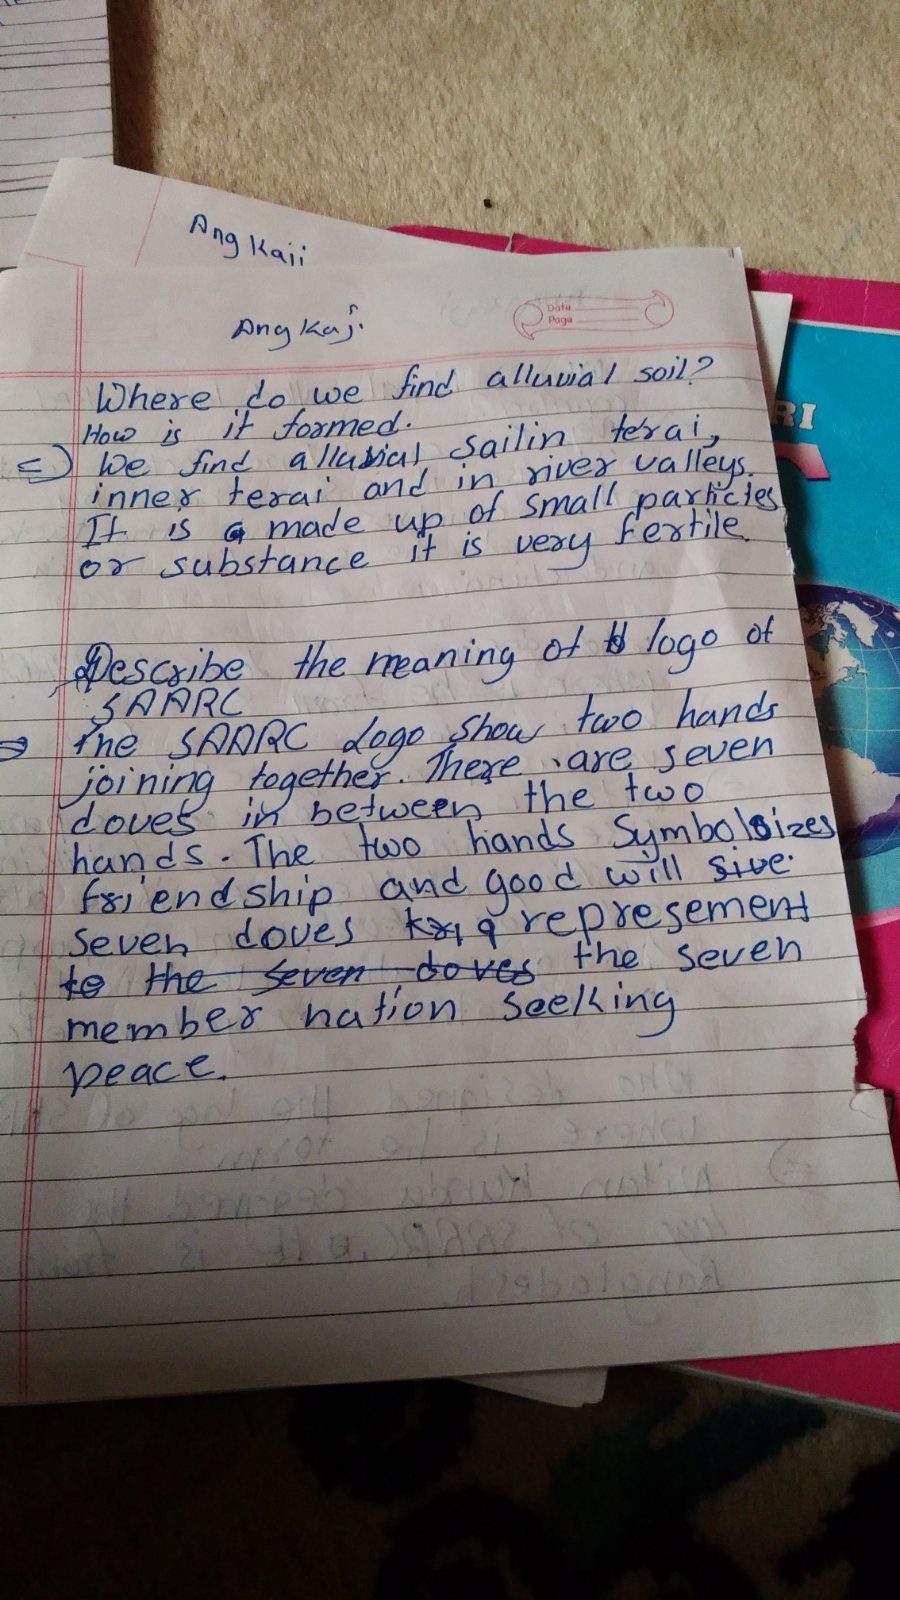 Ang Kaji
Ang Kaji
Date
Page
RI
Where do we find alluvial soil?
How is it formed.
=> We find alluvial sailin terai,
inner terai and in river valleys.
It is a made up of small particles
or substance it is very fertile.
Describe the meaning of logo of
SAARC
=> The SAARC Logo Show two hands
joining together. There are seven
doves in between the two
hands. The two hands Symbolsizes
friendship and good will sive.
seven doves represement
to the seven doves the seven
member nation seeking
peace.
Who designed the log of
where is he form
=> Nitun Kundu designed the
log of SAARC. He is from
Bangladesh.